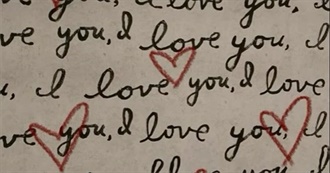 you, I love you,
ve you, I love you, I
, I love you, I love
ve you, I love you, I